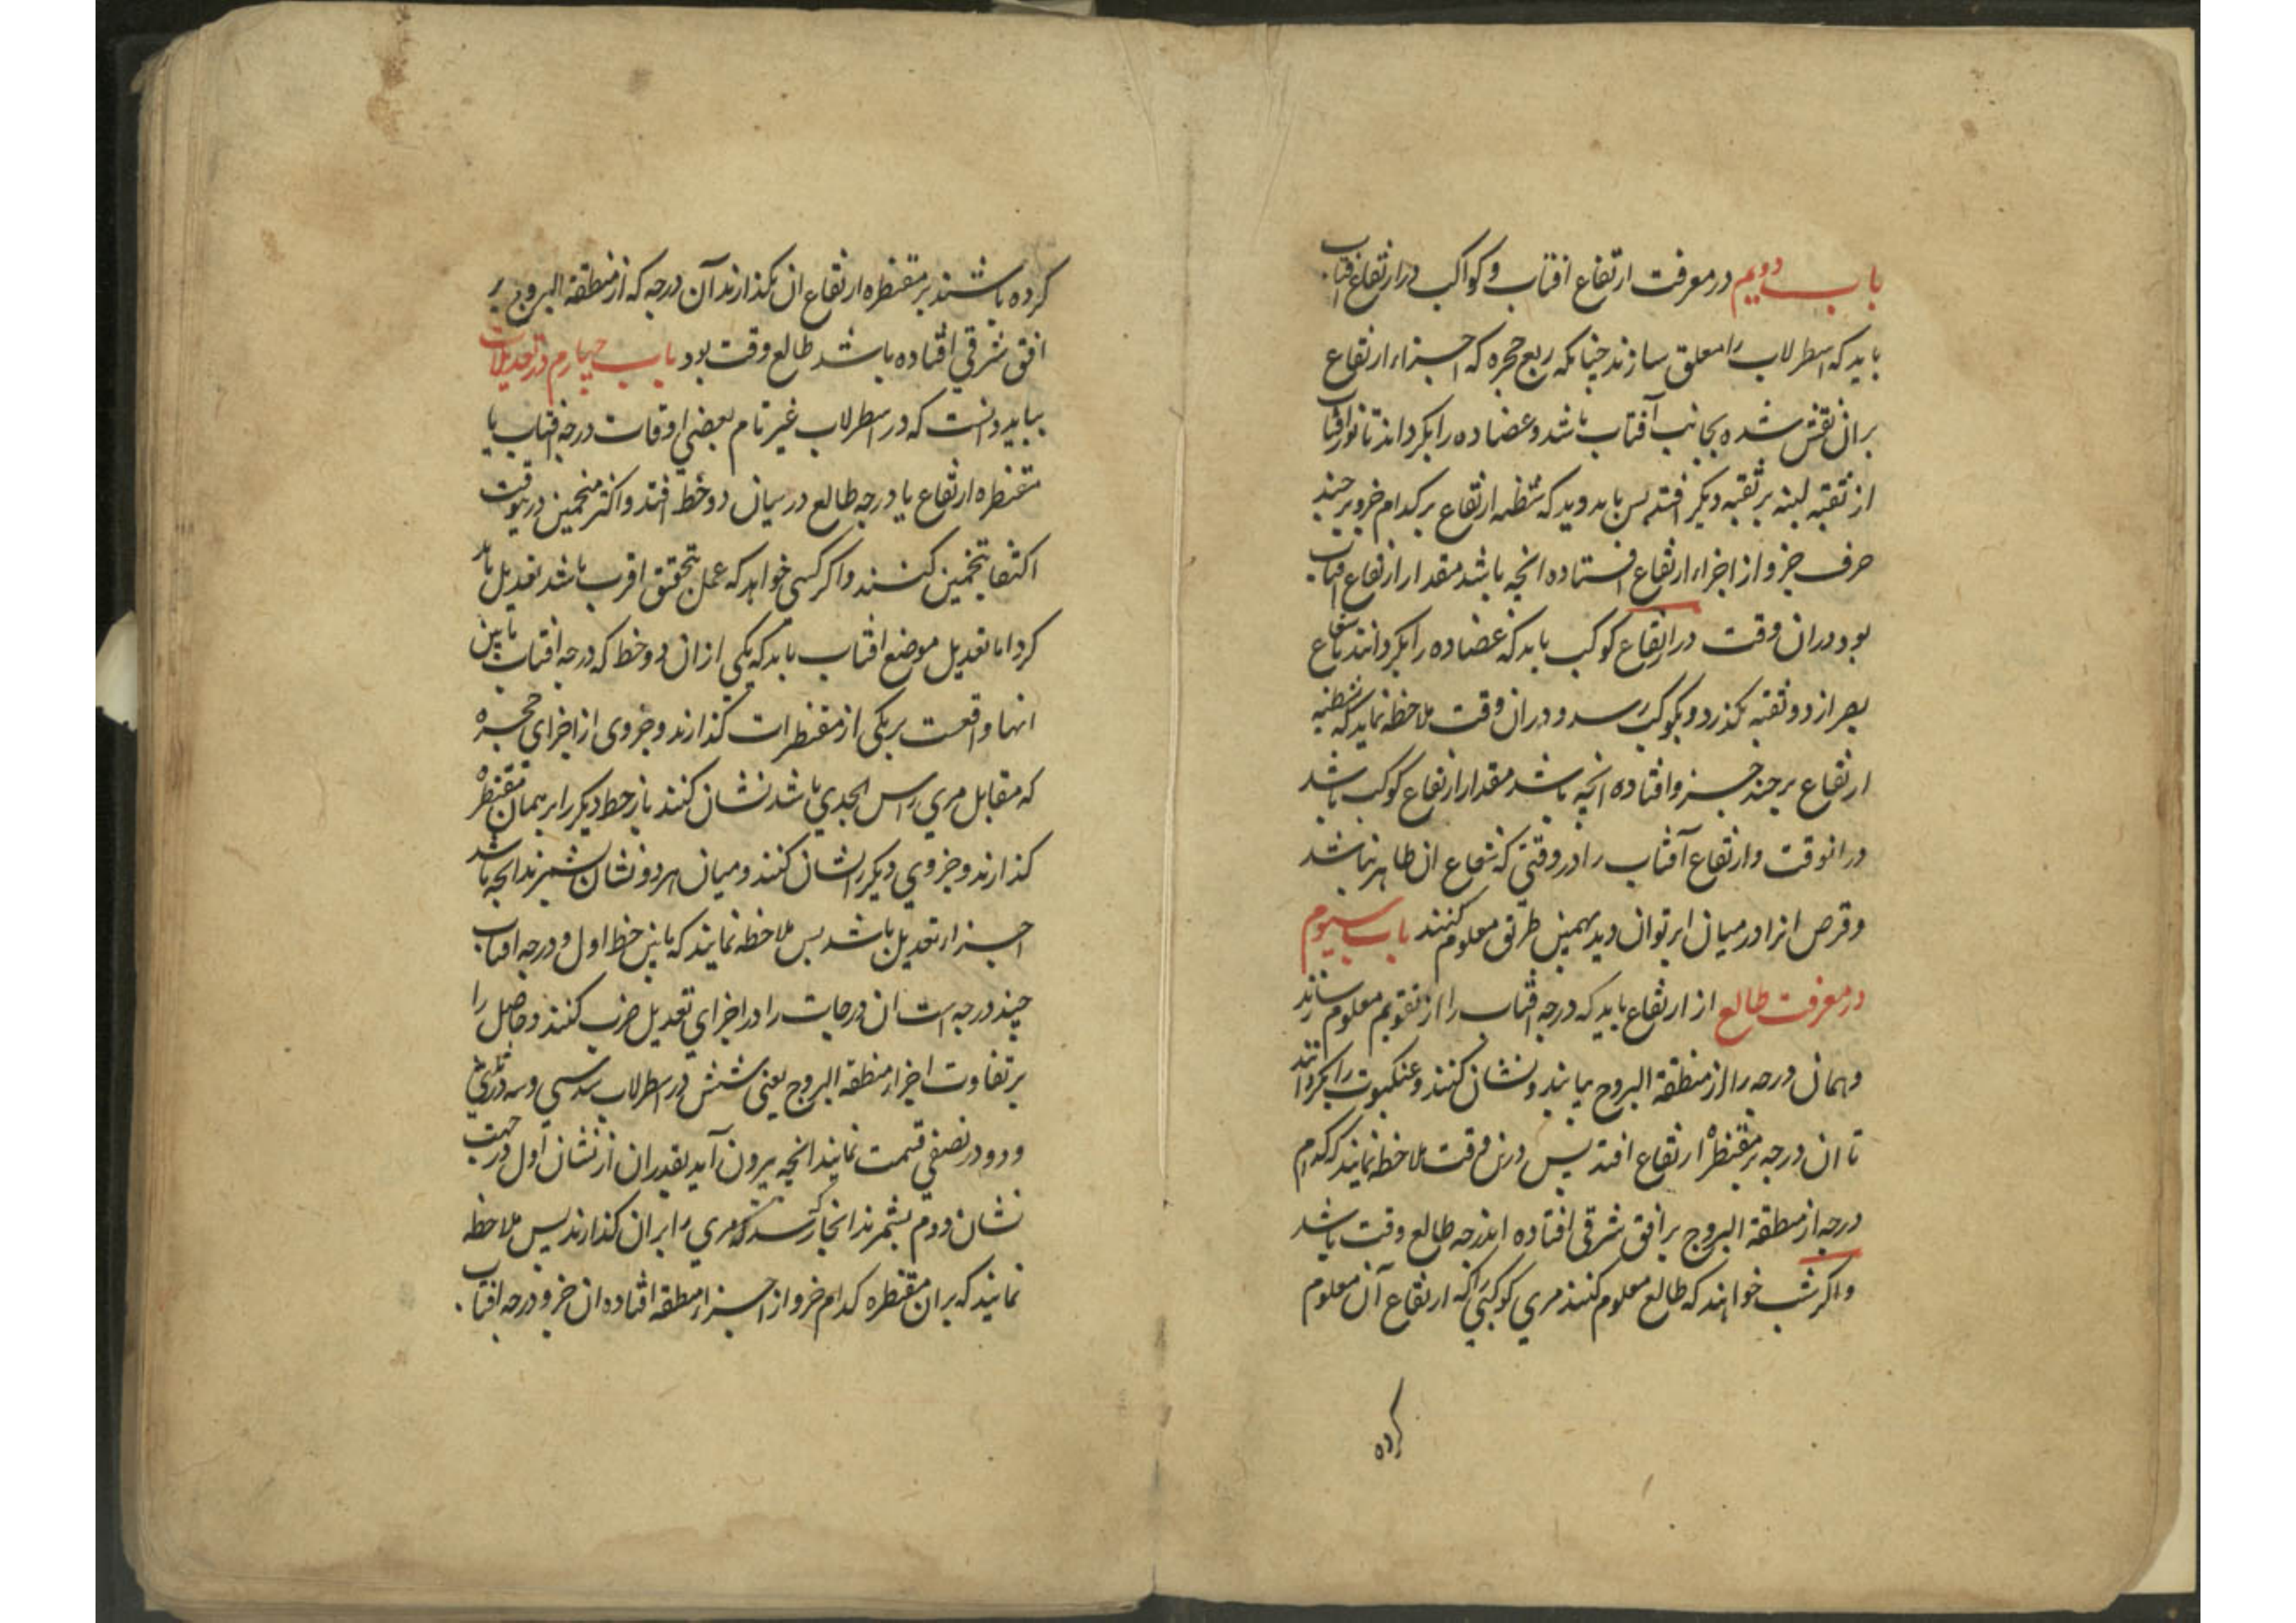 باب دویم در معرفت ارتفاع افتاب و کواکب در ارتفاع افتاب
باید که اسطرلاب را معلق سازند چنانکه ربع حجره که اجزاء ارتفاع
بران نقش شده بجانب آفتاب باشد و عضاده را بکردانند تا نور افتاب
از ثقبه لبنه بر ثقبه دیکر افتد پس باید دید که شظیه ارتفاع بر کدام جزو بر چند
حرف جزو از اجزاء ارتفاع افتاده انچه باشد مقدار ارتفاع افتاب
بود دران وقت در ارتفاع کوکب باید که عضاده را بکردانند تا شعاع
بصر از دو ثقبه بکذرد و بکوکب رسد و دران وقت ملاحظه نماید که شظیه
ارتفاع بر چند جزو افتاده انچه باشد مقدار ارتفاع کوکب باشد
درانوقت و ارتفاع آفتاب را در وقتی که شعاع ان ظاهر نباشد
و قرص انرا در میان ابر توان دید بهمین طریق معلوم کنند باب سیوم
در معرفت طالع از ارتفاع باید که درجه افتاب را از تقویم معلوم سازند
و همان درجه را از منطقة البروج بیابند و نشان کنند و عنکبوت را بکردانند
تا ان درجه بر مقنطرهٔ ارتفاع افتد پس درین وقت ملاحظه نمایند که کدام
درجه از منطقة البروج بر افق شرقی افتاده اندرجه طالع وقت باشد
و اکر شب خواهند که طالع معلوم کنند مری کوکبی را که ارتفاع آن معلوم
کرده
کرده باشند بر مقنطره ارتفاع ان بکذارند آن درجه که از منطقة البروج بر
افق شرقی افتاده باشد طالع وقت بود باب چهارم در تعدیلات
بباید دانست که در اسطرلاب غیر تام بعضی اوقات درجه افتاب یا
مقنطره ارتفاع یا درجه طالع در میان دو خط افتد و اکثر منجمین درینوقت
اکتفا بتخمین کنند و اکر کسی خواهد که عمل بتحقیق اقرب باشد تعدیل باید
کرد اما تعدیل موضع افتاب باید که یکی از ان دو خط که درجه افتاب مابین
انها واقعست بر یکی از مقنطرات کذارند و جزوی از اجزای حجره
که مقابل مری راس الجدی باشد نشان کنند باز خط دیکر را بر همان مقنطرهٔ
کذارند و جزوی دیکر را نشان کنند و میان هر دو نشان بشمرند انچه باشد
اجزاء تعدیل باشد پس ملاحظه نمایند که مابین خط اول و درجه افتاب
چند درجه است ان درجات را در اجزای تعدیل ضرب کنند و حاصل را
بر تفاوت اجزاء منطقة البروج یعنی شش در اسطرلاب سدسی و سه در ثلثی
و دو در نصفی قسمت نمایند انچه بیرون آید بقدر ان از نشان اول در جهت
نشان دوم بشمرند انجا که رسد مری را بران کذارند پس ملاحظه
نمایند که بران مقنطره کدام جزو از اجزاء منطقه افتاده ان جزو درجه افتاب